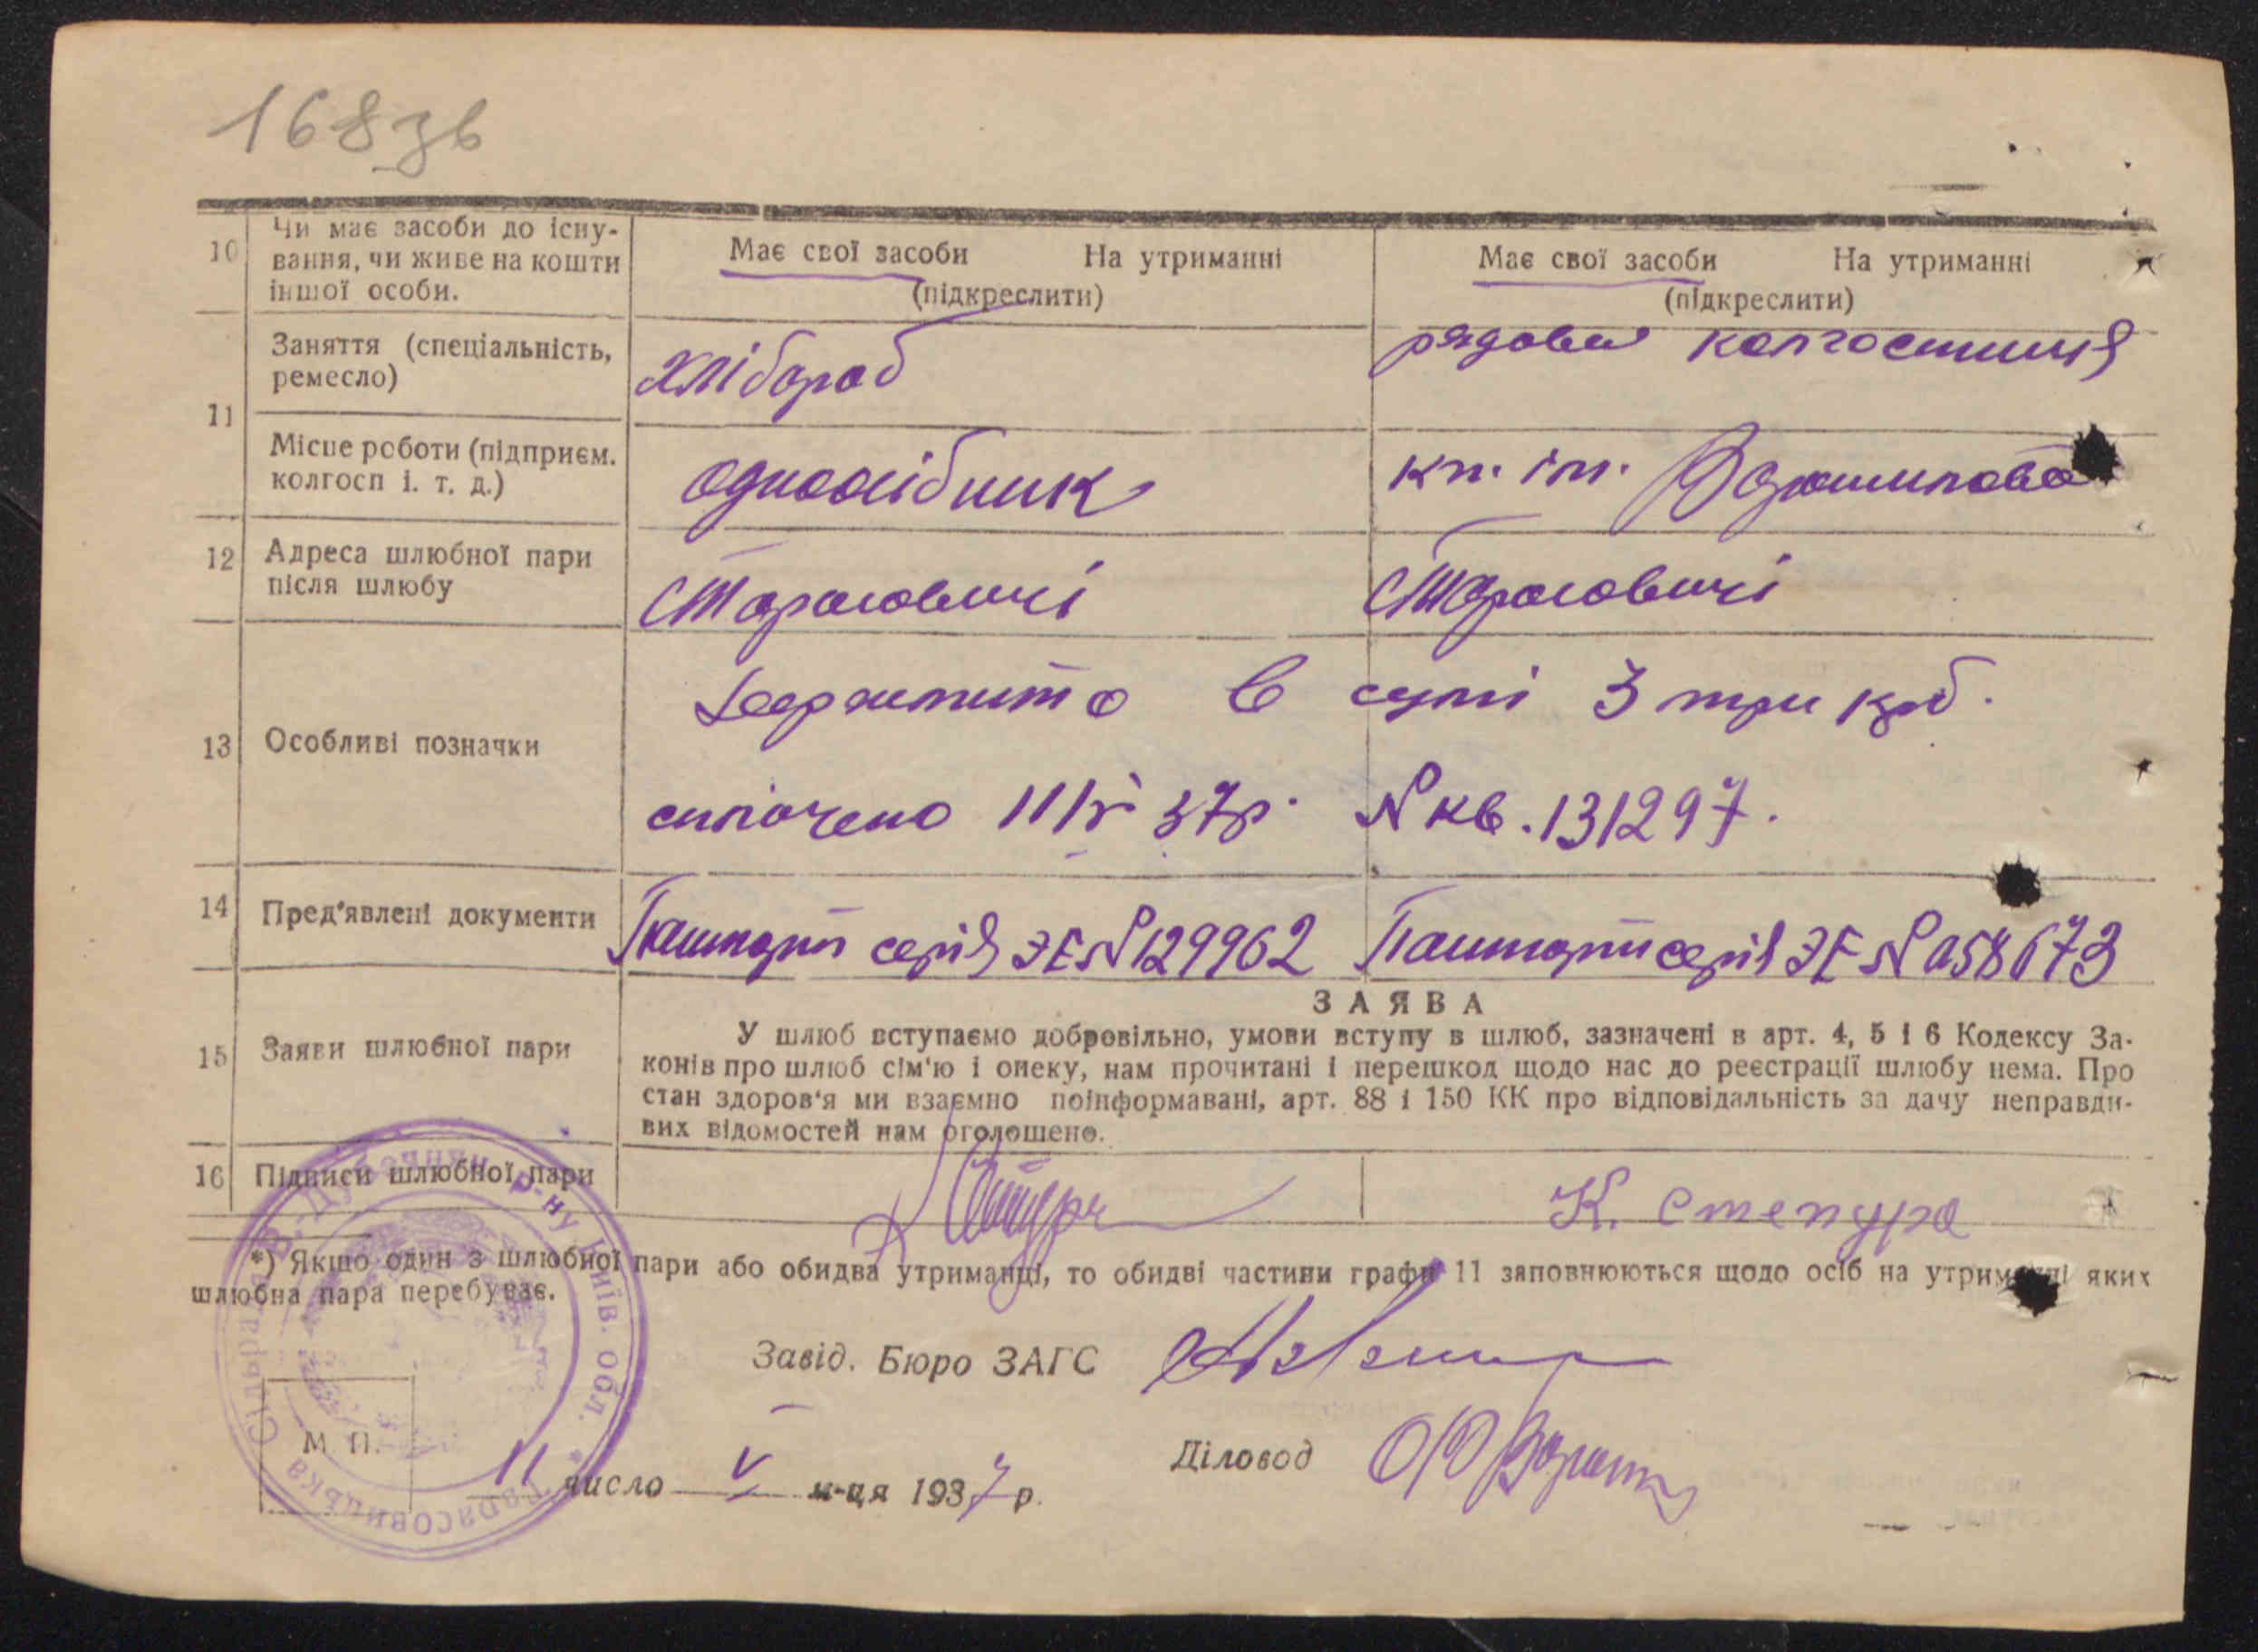 168 зв
10 Чи має засоби до існу-
вання, чи живе на кошти
іншої особи.
Має свої засоби На утриманні
(підкреслити)
Має свої засоби На утриманні
(підкреслити)
11 Заняття (спеціальність,
ремесло)
хлібороб
рядова колгоспниця
Місце роботи (підприєм.
колгосп і. т. д.)
одноосібник
кп. ім. Ворошилова
12 Адреса шлюбної пари
після шлюбу
с Тарасовичі
с Тарасовичі
13 Особливі позначки
в сумі 3 три крб.
сплочено 11/V 37р. № кв. 131297.
14 Пред'явлені документи
Пашпорт серія ЭЕ № 129962
Пашпорт серія ЭЕ № 058673
15 Заяви шлюбної пари
ЗАЯВА
У шлюб вступаємо добровільно, умови вступу в шлюб, зазначені в арт. 4, 5 і 6 Кодексу За-
конів про шлюб сім'ю і опеку, нам прочитані і перешкод щодо нас до реєстрації шлюбу нема. Про
стан здоров'я ми взаємно поінформавані, арт. 88 і 150 КК про відповідальність за дачу неправди-
вих відомостей нам оголошено.
16 Підписи шлюбної пари
К. Степура
*) Якщо один з шлюбної пари або обидва утриманці, то обидві частини графи 11 заповнюються щодо осіб на утриманні яких
шлюбна пара перебуває.
Завід. Бюро ЗАГС
Діловод
М. П.
11 число V м-ця 1937 р.
Тарасовицька Сільрада В-Дубечанськ р-ну Київ. обл.